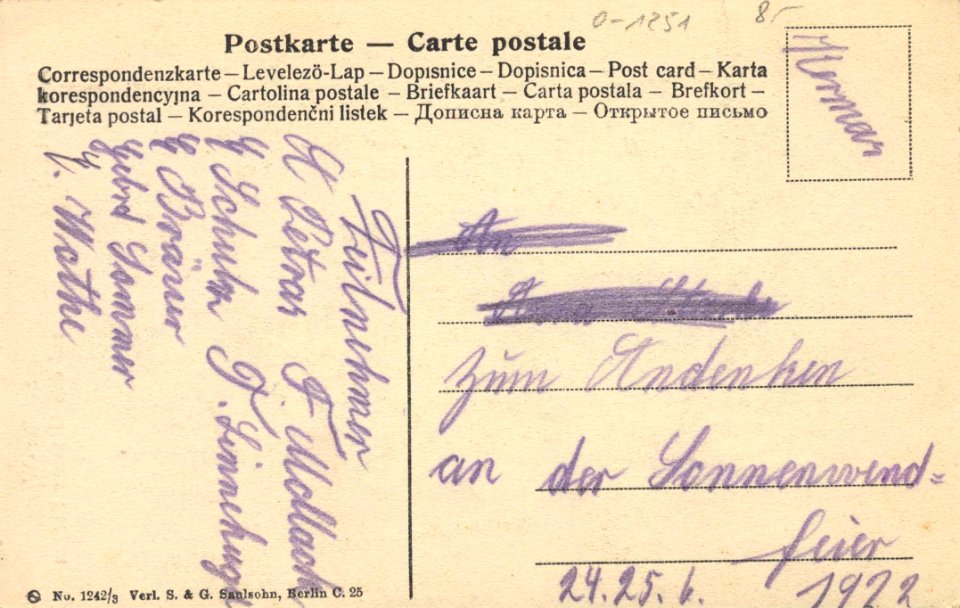 0-1251 8,-
Postkarte — Carte postale
Correspondenzkarte – Levelező-Lap – Dopisnice – Dopisnica – Post card – Karta
korespondencyjna – Cartolina postale – Briefkaart – Carta postala – Brefkort –
Tarjeta postal – Korespondenčni listek – Дописна карта – Открытое письмо
Herman
An
zum Andenken
an der Sonnenwend=
feier
24.25.6. 1922
Teilnehmer
A Petras F. Mollack
G Schulz F.
G Bräuer
Gebrd Sommer
G. Wothe
No. 1242/3 Verl. S. & G. Saulsohn, Berlin C. 25